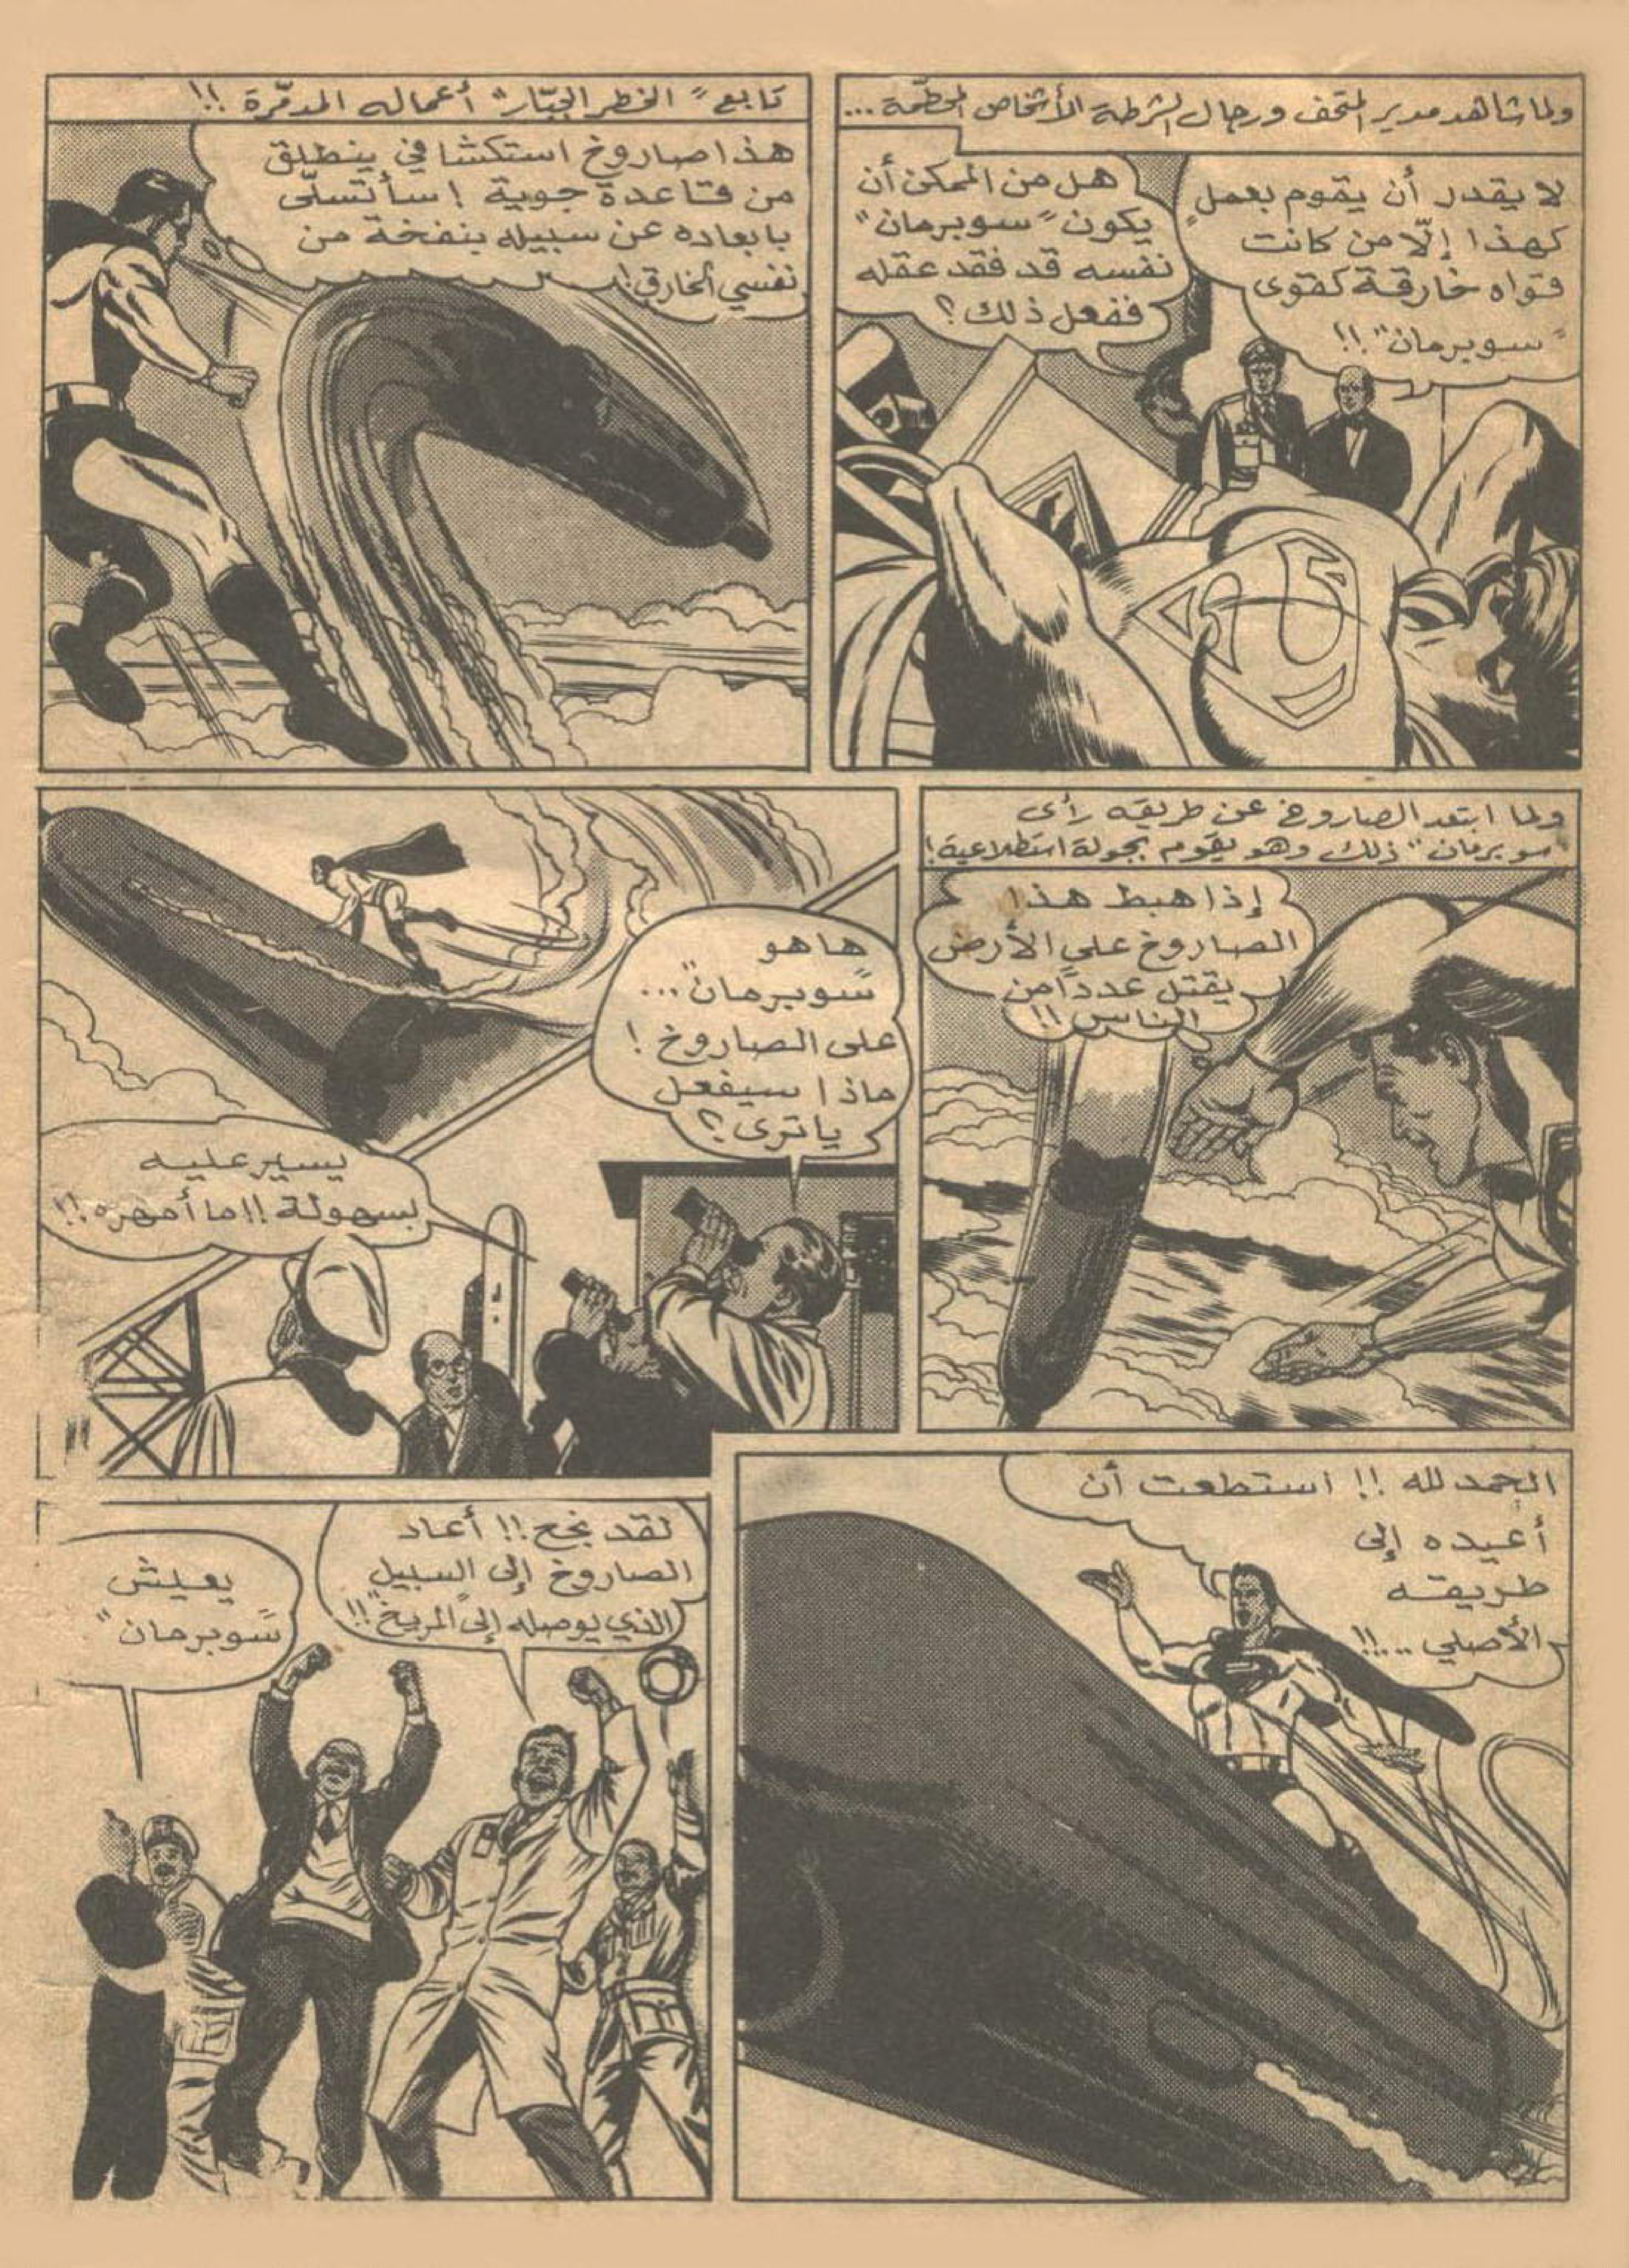 ولما شاهد مدير المتحف ورجال الشرطة الأشخاص المحطّمة ...
لا يقدر أن يقوم بعمل
كهذا إلّا من كانت
قواه خارقة كقوى
"سوبرمان" !!
هل من الممكن أن
يكون "سوبرمان"
نفسه قد فقد عقله
ففعل ذلك ؟
تابع "الخطر الجبّار" أعماله المدمّرة !!
هذا صاروخ استكشافي ينطلق
من قاعدة جوية ! سأتسلّى
بابعاده عن سبيله بنفخة من
نفسي الخارق !
ولما ابتعد الصاروخ عن طريقه رأى
"سوبرمان" ذلك وهو يقوم بجولة استطلاعية !
إذا هبط هذا
الصاروخ على الأرض
يقتل عدداً من
الناس !!
ها هو
"سوبرمان" ...
على الصاروخ !
ماذا سيفعل
يا ترى ؟
يسير عليه
بسهولة !! ما أمهره !!
الحمد لله !! استطعت أن
أعيده إلى
طريقه
الأصلي ..!!
لقد نجح !! أعاد
الصاروخ إلى السبيل
الذي يوصله إلى "المريخ" !!
يعيش
"سوبرمان"